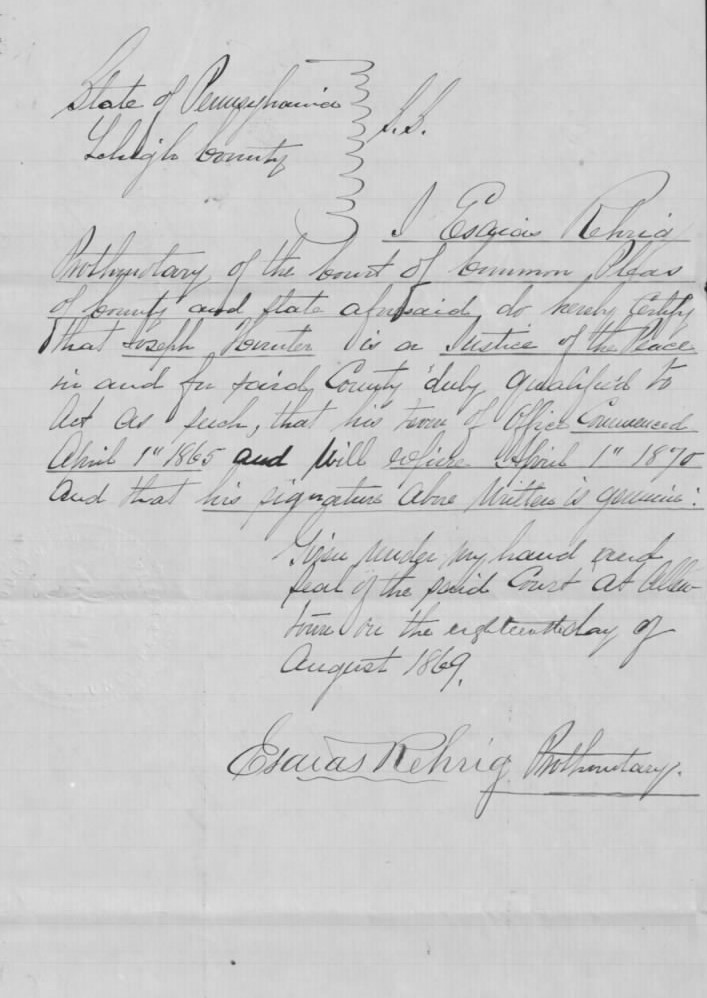 State of Pennsylvania
Lehigh County
S.S.
I Esaias Rehrig
Prothonotary of the Court of Common Pleas
of County and State aforesaid, do hereby Certify
that Joseph Hunter is a Justice of the Peace
in and for said County duly qualified to
Act as such, that his term of Office Commenced
April 1" 1865 and Will expire April 1" 1870
and that his signature above Written is genuine.
Given under my hand and
seal of the said Court at Allen-
town on the eighteenth day of
August 1869.
Esaias Rehrig Prothonotary.